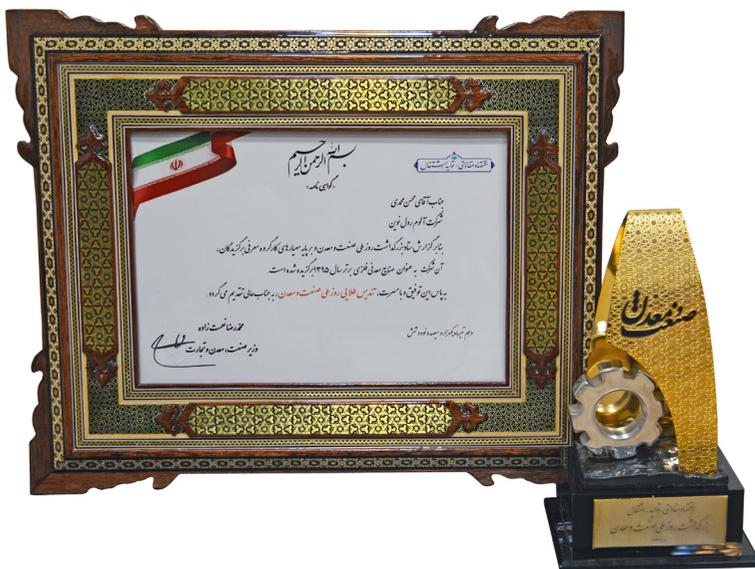 بسم الله الرحمن الرحیم
«گواهی نامه»
اقتصاد مقاومتی: تولید - اشتغال
جناب آقای محسن محمدی
شرکت آلوم رول نوین
بنا بر گزارش ستاد بزرگداشت روز ملی صنعت و معدن و بر پایه معیارهای کارگروه معرفی برگزیدگان،
آن شرکت به عنوان صنایع معدنی فلزی برتر سال ۱۳۹۵ برگزیده شده است.
به پاس این توفیق و با مسرت، تندیس طلایی روز ملی صنعت و معدن، به جنابعالی تقدیم می گردد.
دهم تیرماه یکهزار و سیصد و نود و شش
محمدرضا نعمت زاده
وزیر صنعت، معدن و تجارت
صنعت و معدن
اقتصاد مقاومتی: تولید - اشتغال
بزرگداشت روز ملی صنعت و معدن